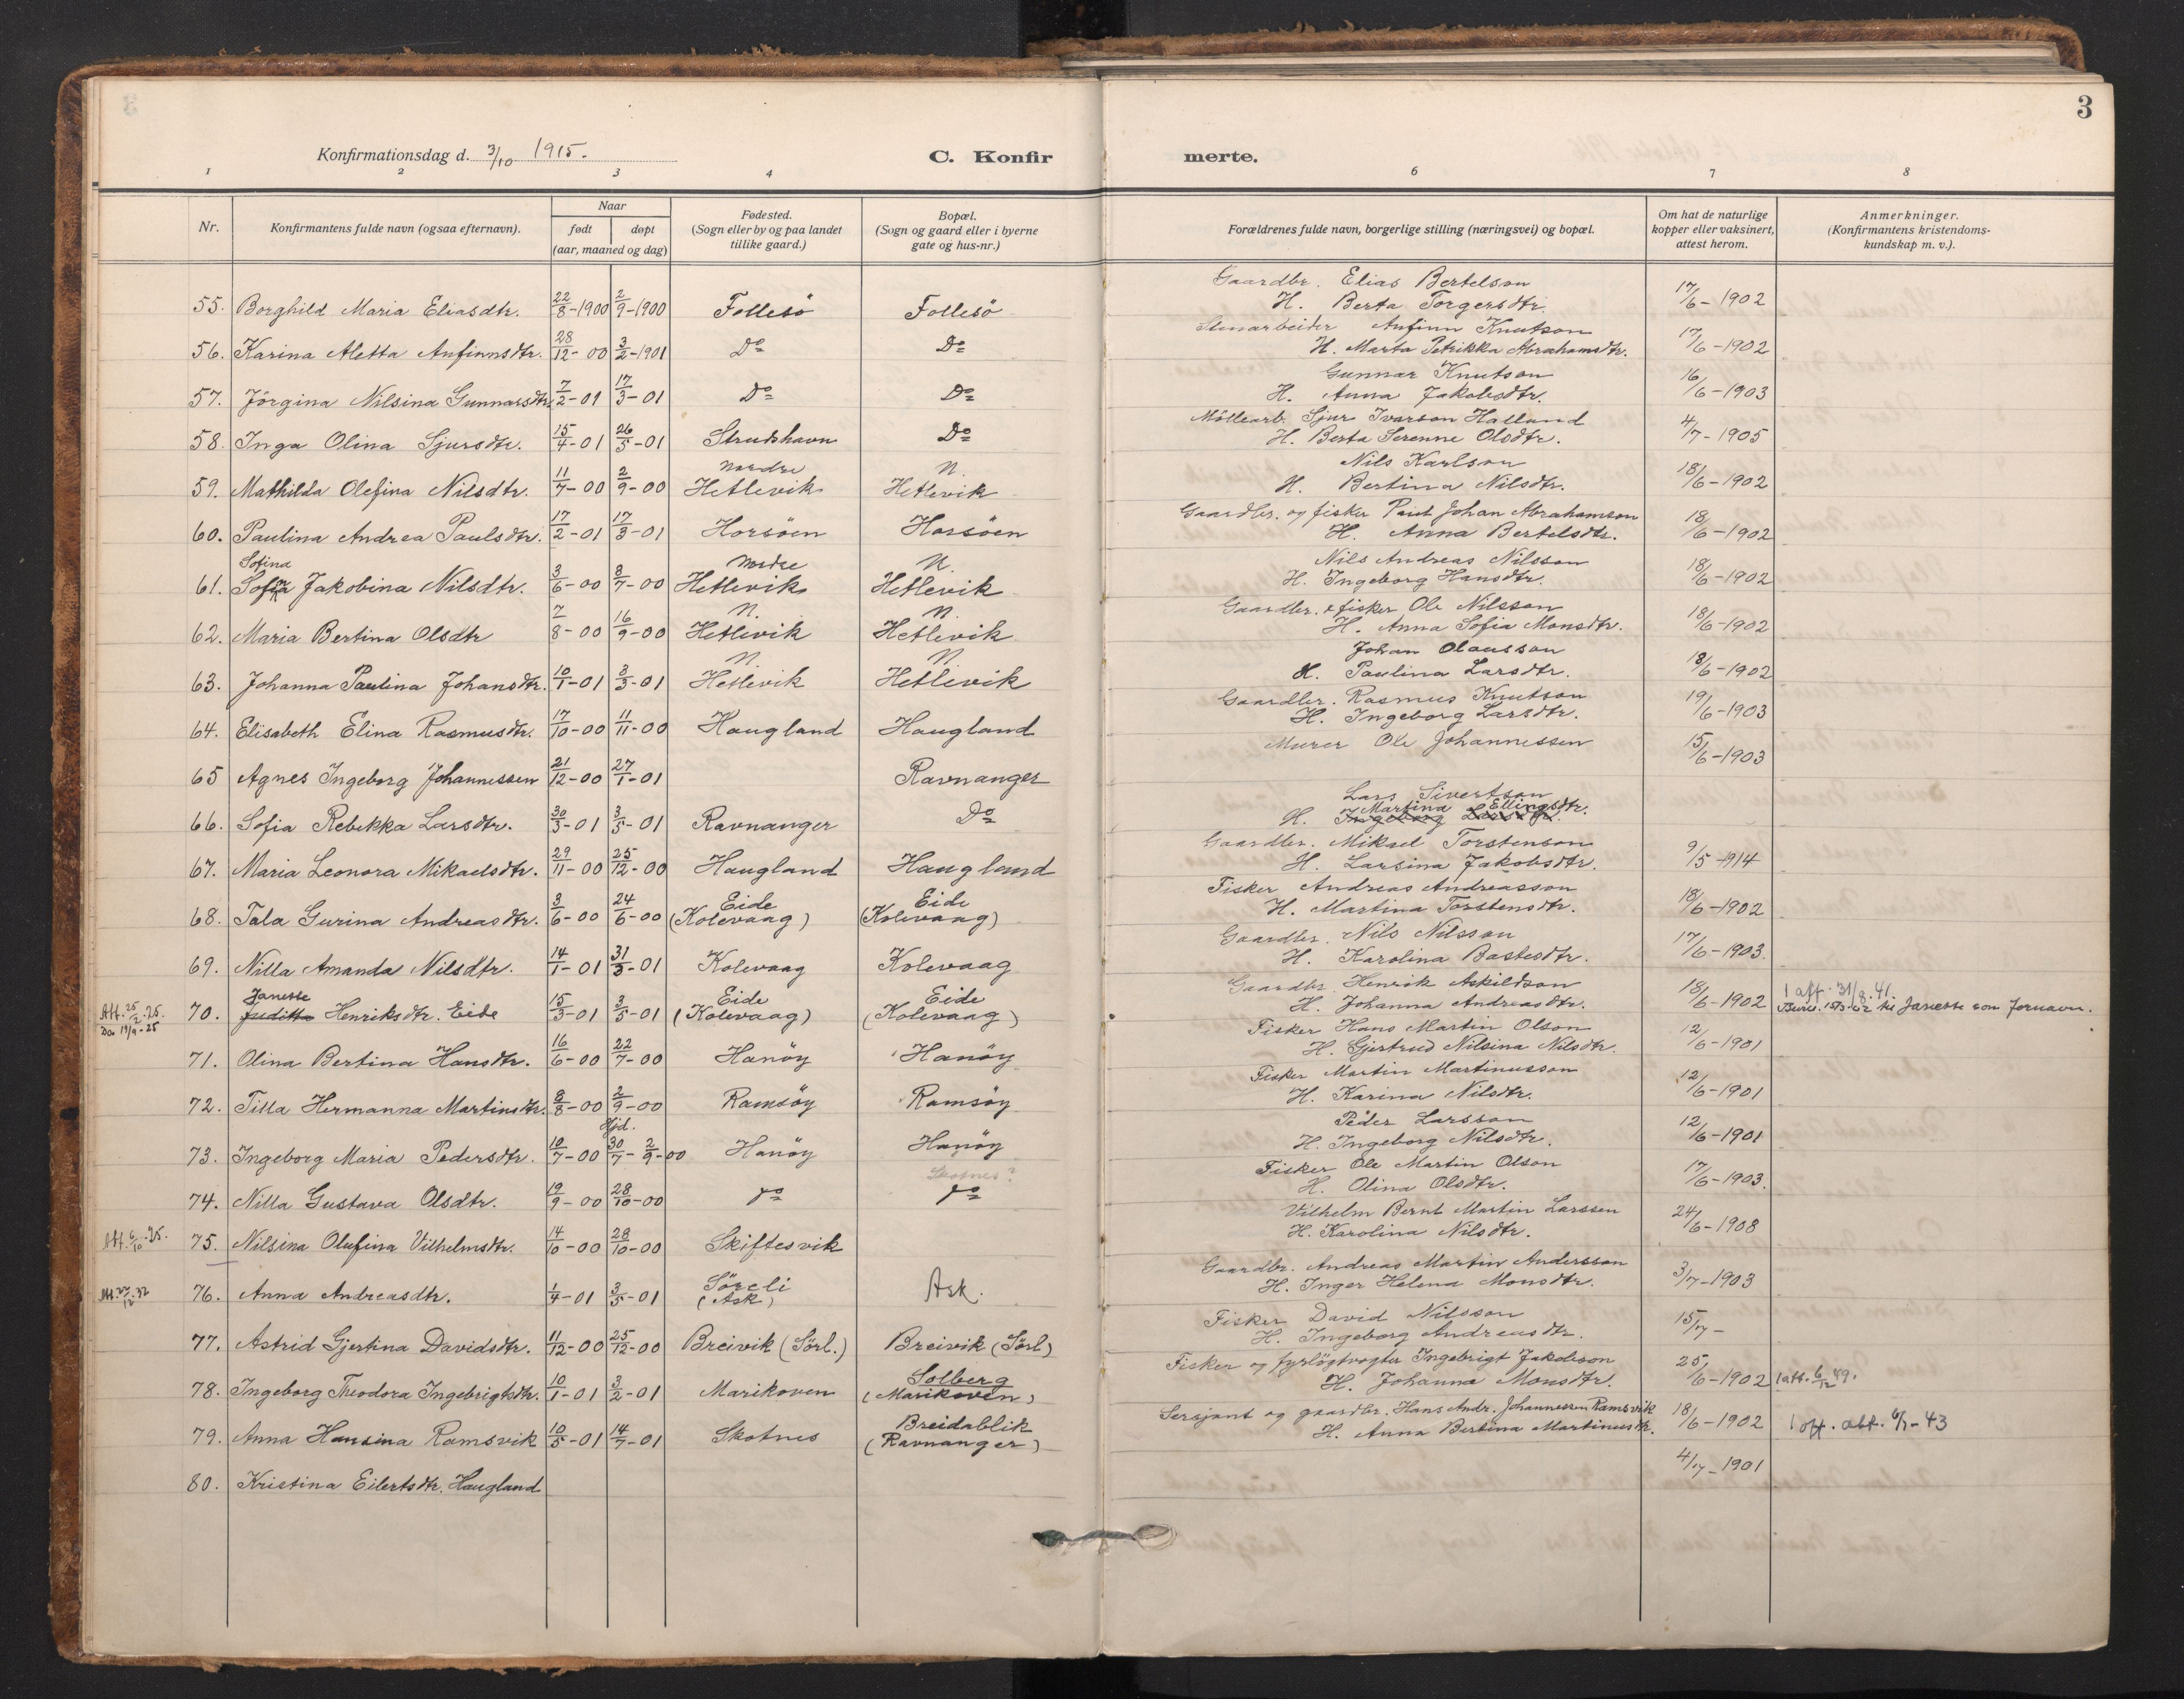 3
Konfirmationsdag d. 3/10 1915.
C. Konfirmerte.
1 2 3 4 6 7 8
Nr.
Konfirmantens fulde navn (ogsaa efternavn).
Naar
født døpt
(aar, maaned og dag)
Fødested.
(Sogn eller by og paa landet
tillike gaard.)
Bopæl.
(Sogn og gaard eller i byerne
gate og hus-nr.)
Forældrenes fulde navn, borgerlige stilling (næringsvei) og bopæl.
Om hat de naturlige
kopper eller vaksinert,
attest herom.
Anmerkninger.
(Konfirmantens kristendoms-
kundskap m. v.).
55. Borghild Maria Eliasdtr. 22/8-1900 2/9-1900 Follesö Follesö Gaardbr. Elias Bertelson
H. Berta Torgersdtr. 17/6-1902
56. Karina Aletta Anfinnsdtr. 28/12-00 3/2-1901 Do Do Stenarbeider Anfinn Knutson
H. Marta Petrikka Abrahamsdtr. 17/6-1902
57. Jörgina Nilsina Gunnarsdtr. 7/2-01 17/3-01 Do Do Gunnar Knutson
H. Anna Jakobsdtr. 16/6-1903
58. Inga Olina Sjursdtr. 15/4-01 26/5-01 Strudshavn Do Möllearb. Sjur Ivarson Halland
H. Berta Serenne Olsdtr. 4/7-1905
59. Mathilda Olefina Nilsdtr. 11/7-00 2/9-00 Nordre Hetlevik N. Hetlevik Nils Karlson
H. Bertina Nilsdtr. 18/6-1902
60. Paulina Andrea Paulsdtr. 17/2-01 17/3-01 Horsöen Horsöen Gaardbr. og fisker Paul Johan Abrahamson
H. Anna Bertelsdtr. 18/6-1902
Sofina
61. Sofia Jakobina Nilsdtr. 3/6-00 8/7-00 Nordre Hetlevik N. Hetlevik Nils Andreas Nilsson
H. Ingeborg Hansdtr. 18/6-1902
62. Maria Bertina Olsdtr 7/8-00 16/9-00 N. Hetlevik N. Hetlevik Gaardbr. & fisker Ole Nilsson
H. Anna Sofia Monsdtr. 18/6-1902
63. Johanna Paulina Johansdtr. 10/1-01 3/3-01 N. Hetlevik N. Hetlevik Johan Olausson
H. Paulina Larsdtr. 18/6-1902
64. Elisabeth Elina Rasmusdtr. 17/10-00 11/11-00 Haugland Haugland Gaardbr. Rasmus Knutson
H. Ingeborg Larsdtr. 19/6-1903
65 Agnes Ingeborg Johannessen 21/12-00 27/1-01 Ravnanger Murer Ole Johannessen 15/6-1903
66. Sofia Rebekka Larsdtr. 30/3-01 3/5-01 Ravnanger Do Lars Sivertson
Martina Ellingsdtr.
H. Ingeborg Larsdtr.
67. Maria Leonora Mikaelsdtr. 29/11-00 25/12-00 Haugland Haugland Gaardbr. Mikael Torstenson
H. Larsina Jakobsdtr. 9/5-1914
68. Tala Gurina Andreasdtr. 3/6-00 24/6-00 Eide (Kolevaag) Eide (Kolevaag) Fisker Andreas Andreasson
H. Martina Torstensdtr. 18/6-1902
69. Nilla Amanda Nilsdtr. 14/1-01 31/3-01 Kolevaag Kolevaag Gaardbr. Nils Nilsson
H. Karolina Bastesdtr. 17/6-1903.
Att. 25/2.25.
Do 19/9-25
Janette
70. Juditta Henriksdtr. Eide 15/3-01 3/5-01 Eide (Kolevaag) Eide (Kolevaag) Gaardbr. Henrik Askildson
H. Johanna Andreasdtr. 18/6-1902 1 att. 31/8.41.
Janette som fornavn.
71. Olina Bertina Hansdtr. 16/6-00 22/7-00 Hanöy Hanöy Fisker Hans Martin Olson
H. Gjertrud Nilsina Nilsdtr. 12/6-1901
72. Tilla Hermanna Martinsdtr. 8/8-00 2/9-00 Ramsöy Ramsöy Fisker Martin Martinusson
H. Karina Nilsdtr. 12/6-1901
Hjd.
73. Ingeborg Maria Pedersdtr. 10/7-00 30/7-2/9-00 Hanöy Hanöy Peder Larsson
H. Ingeborg Nilsdtr. 12/6-1901
Skotnes?
74. Nilla Gustava Olsdtr. 19/9-00 28/10-00 do do Fisker Ole Martin Olson
H. Olina Olsdtr. 17/6-1903.
Att. 6/10.25.
75. Nilsina Olufina Vilhelmsdtr. 14/10-00 28/10-00 Skiftesvik Vilhelm Bernt Martin Larssen
H. Karolina Nilsdtr. 24/6-1908
Att. 27/12.32
76. Anna Andreasdtr. 1/4-01 3/5-01 Söreli (Ask) Ask. Gaardbr. Andreas Martin Andersson
H. Inger Helena Monsdtr. 3/7-1903
77. Astrid Gjertina Davidsdtr. 11/12-00 25/12-00 Breivik (Sörl.) Breivik (Sörl) Fisker David Nilsson
H. Ingeborg Andreasdtr. 15/7-
78. Ingeborg Theodora Ingebrigtsdtr. 10/1-01 3/2-01 Marikoven Solberg (Marikoven) Fisker og fyrlögtvogter Ingebrigt Jakobson
H. Johanna Monsdtr. 25/6-1902 1 att. 6/12 49.
79. Anna Hansina Ramsvik 10/5-01 14/7-01 Skotnes Breidablik (Ravnanger) Sersjant og gaardbr. Hans Andr. Johannessen Ramsvik
H. Anna Bertina Martinusdtr. 18/6-1902 1 off. att. 6/1-43
80. Kristina Eilertsdtr. Haugland 4/7-1901